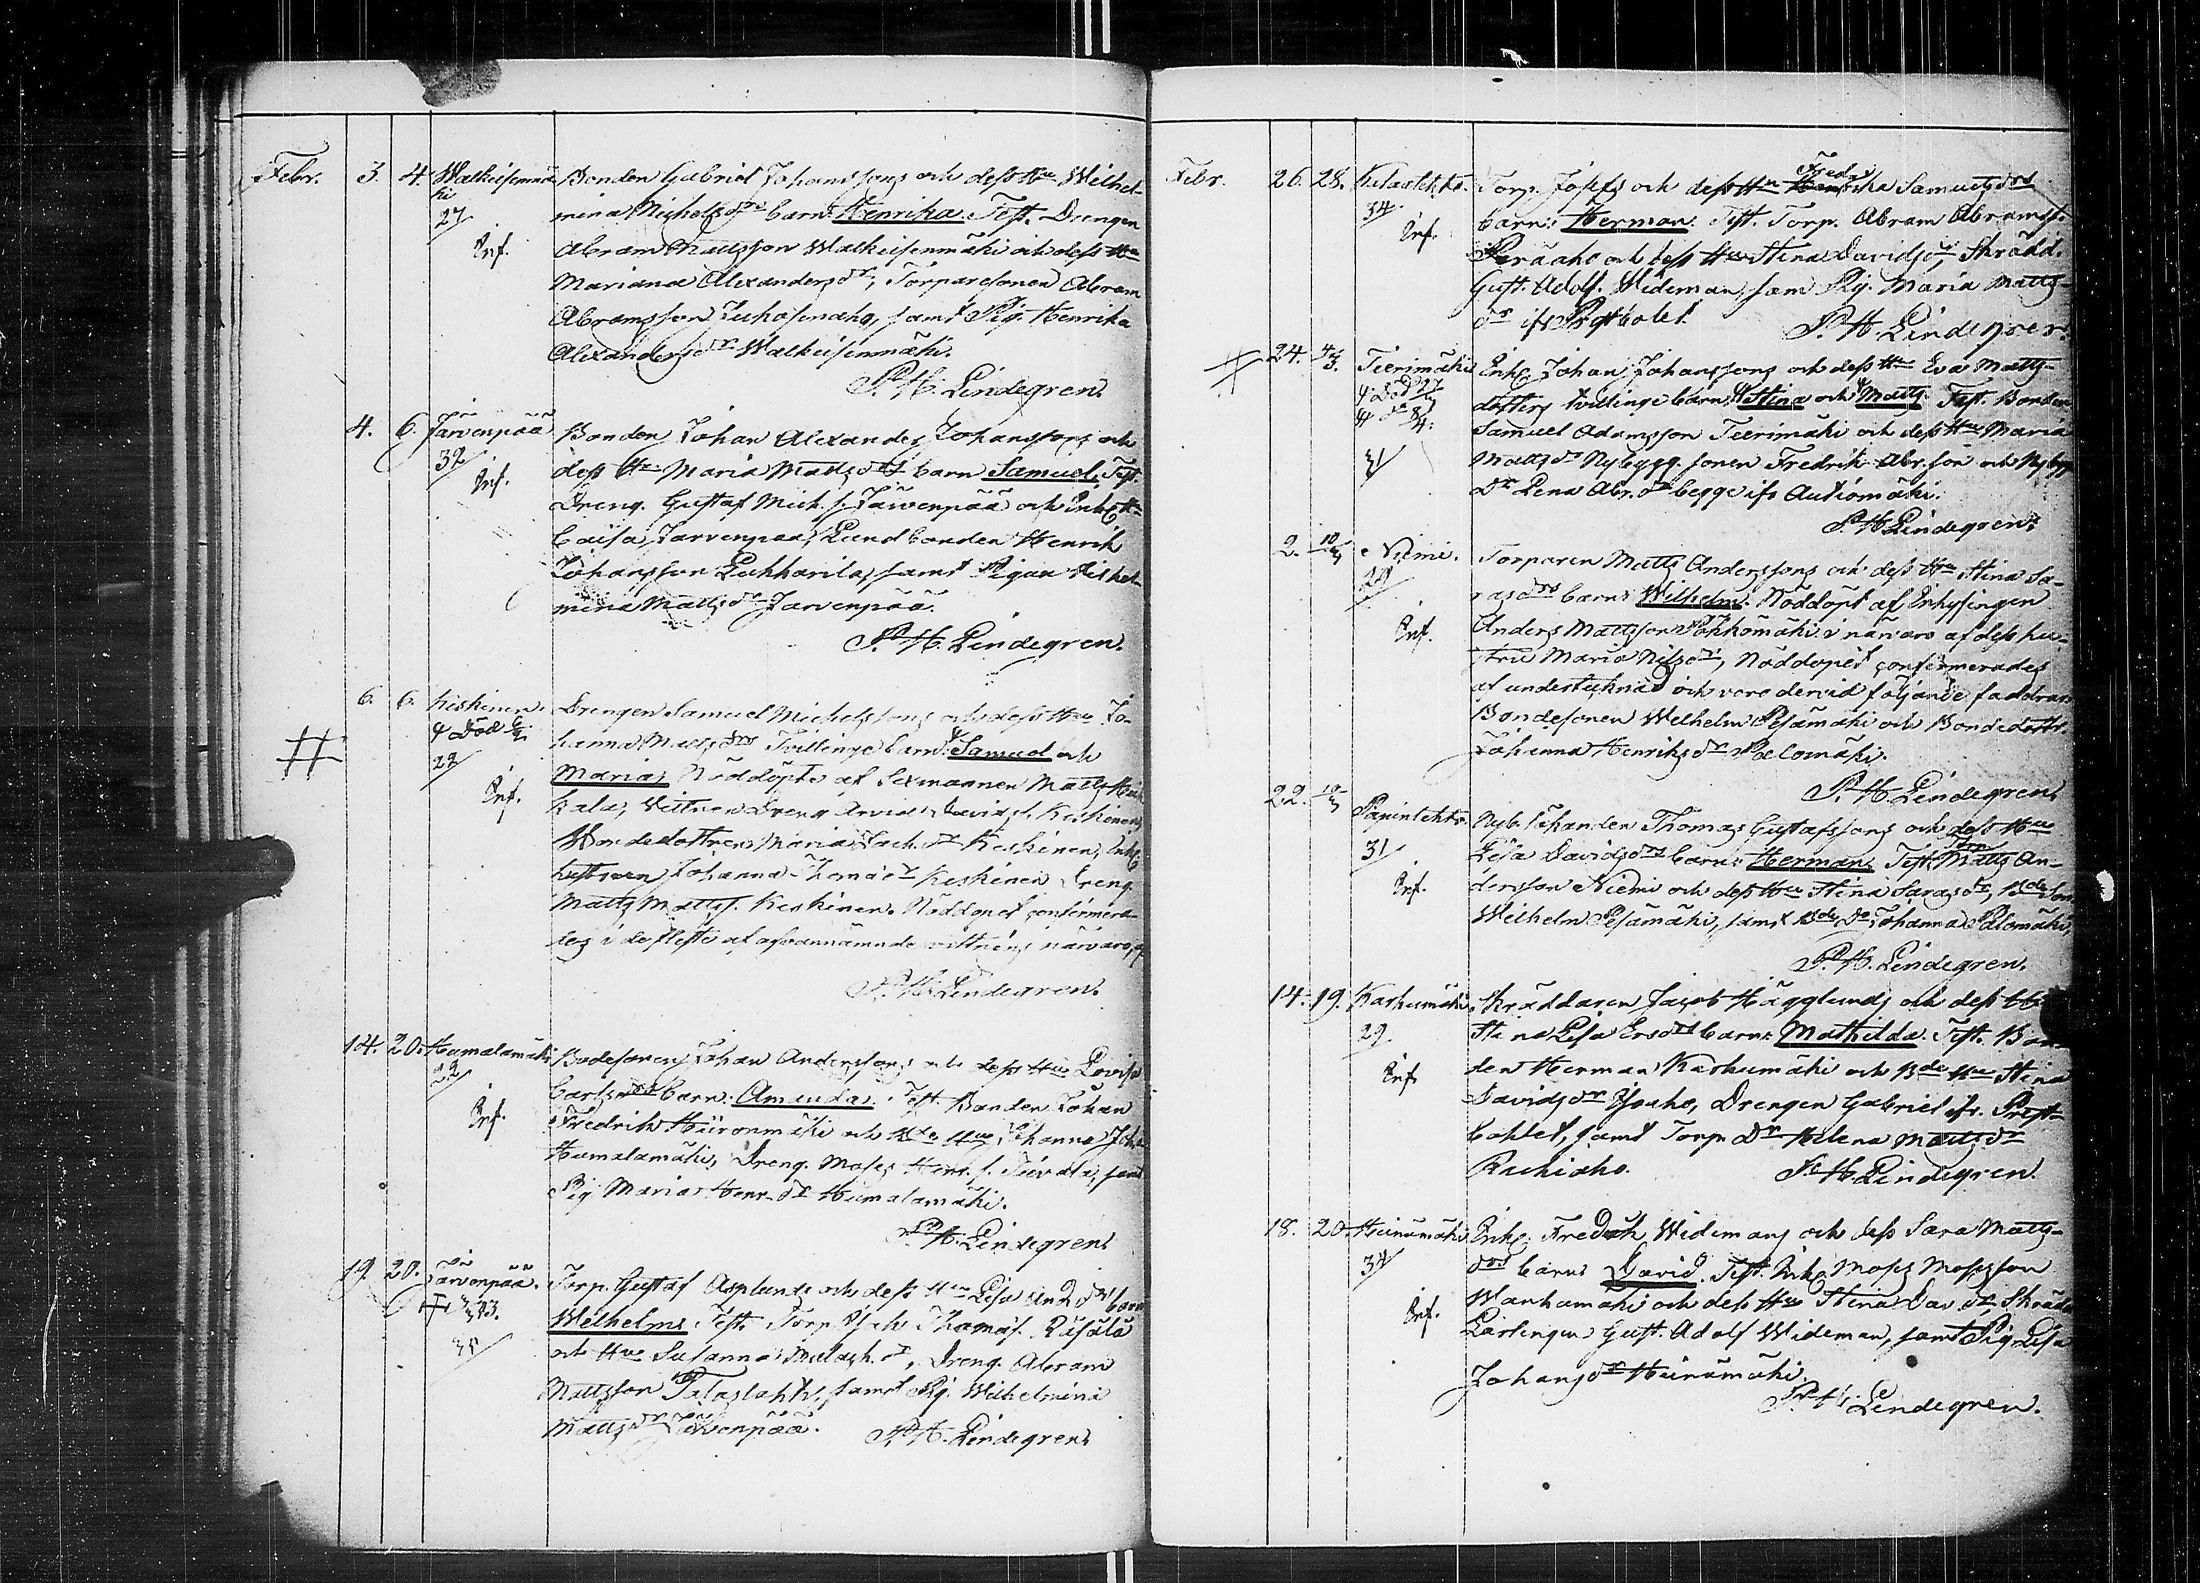 Febr. 3. 4. Walkeisenmä- Bonden Gabriel Johanssons och dess Hu Wilhel-
ki mina Michelsdrs barn: Henrika. Test. Drengen
27 Abram Mattsson Walkeisenmäki och dess Hu
Inf. Mariana Alexandersdr, Torparesonen Abram
Abramsson samt Pig. Henrika
Alexandersdr Walkeisenmäki.
P. H. Lindegren.
4. 6. Järvenpää Bonden Johan Alexander Johanssons och
32 dess Hu Maria Mattsdrs barn Samuel. Test.
Inf. Dreng. Gustaf Mich. s. Järvenpää och Inh. Hu
Caisa Järvenpää, Bonden Henrik
Johansson samt Pigan Wilhel-
mina Mattsdr Järvenpää.
P. H. Lindegren.
6. 6. Keskinen. Drengen Samuel Michelssons och dess Hu Jo-
Död hanna Mattsdrs Tvillinge barn Samuel och
22 Maria, Nöddöpte af Sexmannen Matts
Inf. Vittnen Dreng Arvid Davids. Keskinen,
Bondedottren Maria Zach. dr Keskinen, Inh.
hustrun Johanna Thomasdr Keskinen Dreng.
Matts Matts s. Keskinen. Nöddopet confirmera-
des i de fleste af ofvannämnde vittnens närvaro, af
P. H. Lindegren.
14. 20. Humalamäki Bodesonen Johan Anderssons och dess Hu Lovisa
22 Carlsdrs barn: Amanda. Test. Bonden Johan
Inf. Fredrik och Bde Hu Johanna
Humalamäki, Dreng. Moses Henr. s. samt
Pig Maria Henr. dr Humalamäki.
P. H. Lindegren.
19. 20. Järvenpää. Torp. Gustaf Asplunds och dess Hu Lisa And. drs barn
Wilhelm. Test. Torp. Thomas. Räisälä
och Hu Susanna dr, Dreng. Abram
Mattsson samt Pig. Wilhelmina
Mattsdr Järvenpää. P. H. Lindegren.
Febr. 26. 28. Torp. Josefs och dess Hu Fredrika Samuelsdrs
34 barn: Herman. Test. Torp. Abram Abramss.
Inf. Peräaho och dess Hu Stina Davidsdr, Skrädd.
Gust. Adolf. Wideman, sam Pig. Maria Matts-
dr ifr Prestbolet. P. H. Lindegren.
24. 4/3. Teerimäki Inh. Johan Johanssons och dess Hu Eva Matts-
Död dotters tvillinge barn, Stina och Matts. Test. Bonden
Samuel Adamsson Teerimäki och dess Hu Maria
31 Mattsdr Nybygg. sonen Fredrik Abr. son och Nybygg.
Dr Lena Abr. dr begge ifr Autiomäki.
P. H. Lindegren.
2. 10/3 Niemi. Torparen Matts Anderssons och dess Hu Stina Sa-
29 rasdrs barn: Wilhelm. Nöddöpt af Inhysingen
Inf. Anders Mattsson i närvaro af dess hu-
stru Maria Nilsdr, Nöddopet confirmerades
af undertecknad och voro dervid följande faddrar
Bondesonen Wilhelm Pesämäki och Bondedottr.
Johanna Henriksdr Palomäki.
P. H. Lindegren.
22. 10/3 Nyb. Åkanden Thomas Gustafssons och dess Hu
31 Lisa Davidsdrs barn: Herman. Test. Torp. Matts An-
Inf. dersson Niemi och dess Hu Stina Sarasdr, Bdeson
Wilhelm Pesämäki, samt Bde dr Johanna Palomäki,
P. H. Lindegren.
14. 19. Karhumäki. Skräddaren Jacob Hägglunds och dess Hu
29. Stina Lisa Ersdrs barn: Mathilda. Test. Bon-
Inf. den Herman Karhumäki och Bde Hu Stina
Davidsdr Drengen Gabriel ifr. Prest-
bohlet, samt Torp. Dr Helena Mattsdr
P. H. Lindegren.
18. 20. Heinämäki Inh. Fredrik Widemans och dess Sara Matts-
34 drs barn: David. Test. Inh. Moses Mosesson
Inf. Wanhamäki och dess Hu Stina Dav. dr Skrädd.
Lärlingen Gust. Adolf Wideman, samt Pig. Lisa
Johansdr Heinämäki.
P. H. Lindegren.